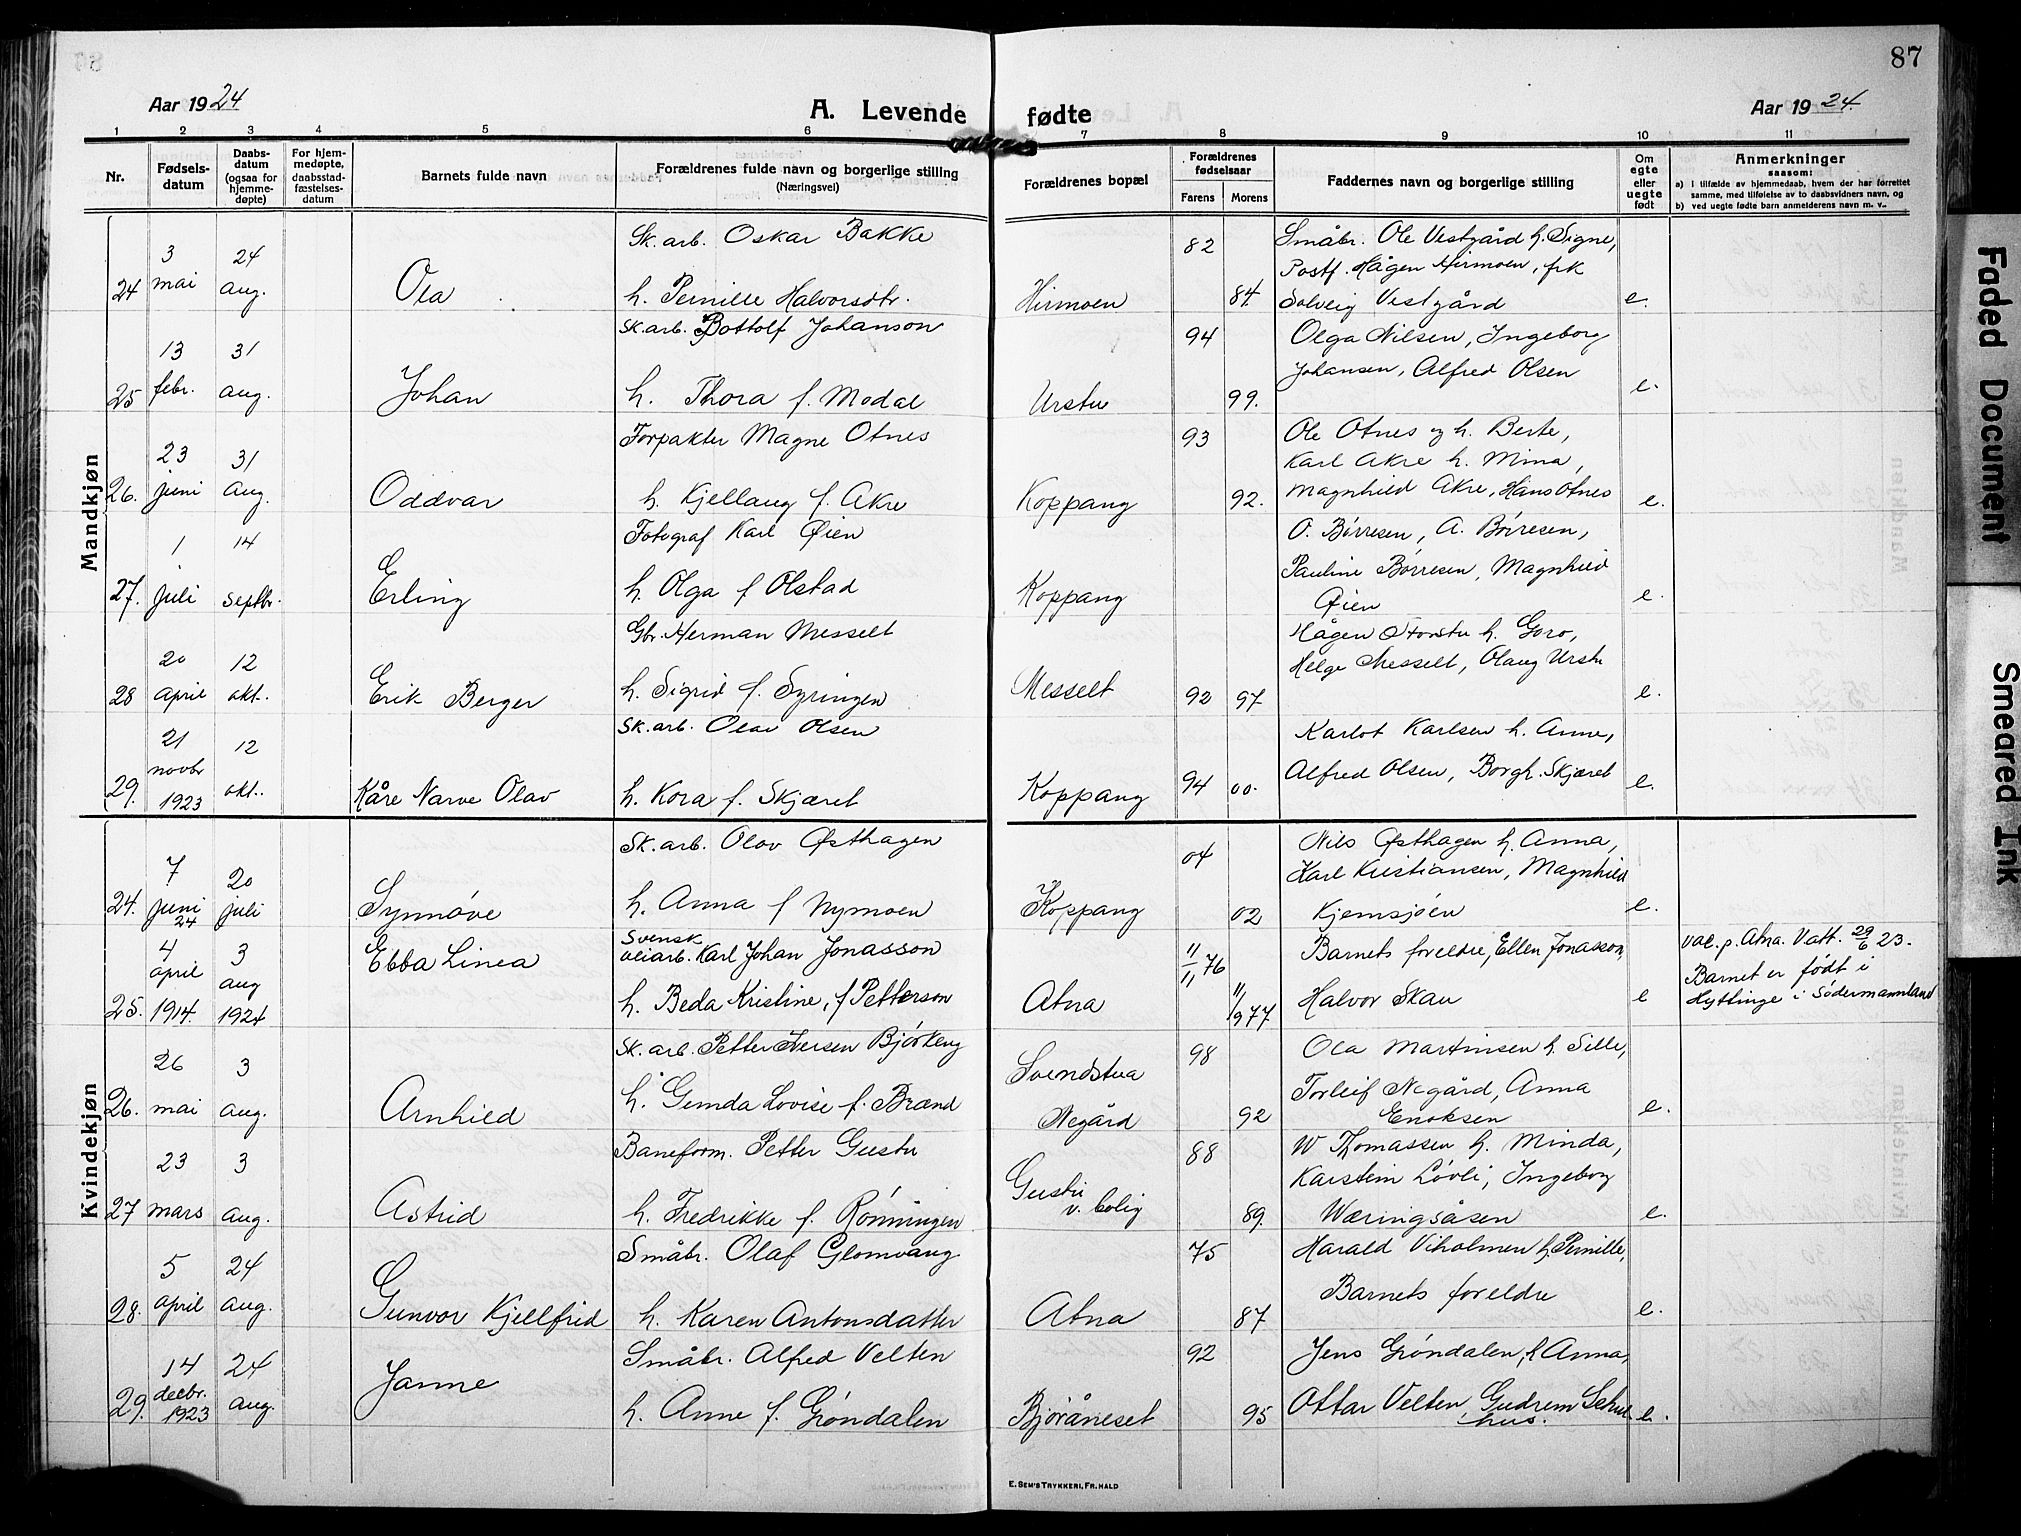 87
Aar 1924
A. Levende fødte
Aar 1924.
1 2 3 4 5 6 7 8 9 10 11
Nr.
Fødsels-
datum
Daabs-
datum
(ogsaa for
hjemme-
døpte)
For hjem-
medøpte,
daabsstad-
fæstelses-
datum
Barnets fulde navn
Forældrenes fulde navn og borgerlige stilling
(Næringsvei)
Forældrenes bopæl
Forældrenes
fødselsaar
Farens Morens
Faddernes navn og borgerlige stilling
Om
egte
eller
uegte
født
Anmerkninger
saasom:
a) i tilfælde av hjemmedaab, hvem der har forrettet
samme, med tilføielse av to daabsvidners navn, og
b) ved uegte fødte barn anmelderens navn m. v..
Mandkjøn
24 3 mai 24 aug. Ola
Sk. arb. Oskar Bakke
h. Pernille Halvorsdtr.
Hirmoen 82 84.
Småbr. Ole Vestgård h. Signe,
Postf. Hågen Hirmoen, frk
Solveig Vestgård e.
25 13 febr. 31 aug. Johan
Sk. arb. Bottolf Johanson
h. Thora f. Modal
Urstu 94 99.
Olga Nilsen, Ingeborg
Johansen, Alfred Olsen e.
26. 23 juni 31 aug. Oddvar
Forpakter Magne Otnes
h. Kjellaug f. Akre
Koppang 93 92.
Ole Otnes og h. Berte,
Karl Akre h. Mina,
Magnhild Akre, Hans Otnes e.
27. 1 juli 14 septbr. Erling
Fotograf Karl Øien
h. Olga f Olstad
Koppang
O. Börresen, A. Börresen,
Pauline Börresen, Magnhild
Øien e.
28 20 april 12 okt. Erik Berger
Gbr. Herman Messelt
h. Sigrid f. Syringen
Messelt 92 97
Hågen Storstu h. Goro,
Helge Messelt, Olaug Urstu e.
29. 21 novbr 1923 12 okt. Kåre Narve Olav
Sk. arb. Olav Olsen
h. Kora f. Skjæret
Koppang 94 00.
Karlot Karlsen h. Anne,
Alfred Olsen, Borgh. Skjæret e.
Kvindekjøn
24. 7 juni 24 20 juli Synnöve
Sk. arb. Olav Østhagen
h. Anna f Nymoen
Koppang 04 02
Nils Østhagen h. Anna,
Karl Kristiansen, Magnhild
Kjemsjöen e.
25. 4 april 1914. 3 aug 1924 Ebba Linea
Svensk
veiarb. Karl Johan Jonasson
h. Beda Kristine, f Petterson
Atna 11/11 76 11/9 77
Barnets foreldre, Ellen Jonasson,
Halvor Skau e
vac. p. Atna. Vatt. 29/6 23.
Barnet er født i
Hyttinge i Södermannland
26. 26 mai 3 aug. Arnhild
Sk. arb. Petter Iversen Björkeng
h. Gemda Lovise f. Brænd
Svendstua
Negård 98 92
Ola Martinsen h. Sille,
Torleif Negård, Anna
Enoksen e.
27 23 mars 3 aug. Astrid
Baneform. Petter Gustu
h. Fredrikke f. Rönningen
Gustu
v. bolig 88 89.
W Thomassen h. Minda,
Karstein Lövli, Ingeborg
Wæringsåsen e.
28. 5 april 24 aug. Gunvor Kjellfrid
Småbr. Olaf Glomvang
h. Karen Antonsdatter
Atna 75 87
Harald Viholmen h. Pernille,
Barnets foreldre e.
29. 14 decbr. 1923 24 aug. Janne
Småbr. Alfred Velten
h. Anne f. Gröndalen
Björåneset 92 95
Jens Gröndalen, h Anna,
Ottar Velten, Gudrun Schul-
hus. e.
E. SEM'S TRYKKERI, FR.HALD
Faded Document
Smeared Ink